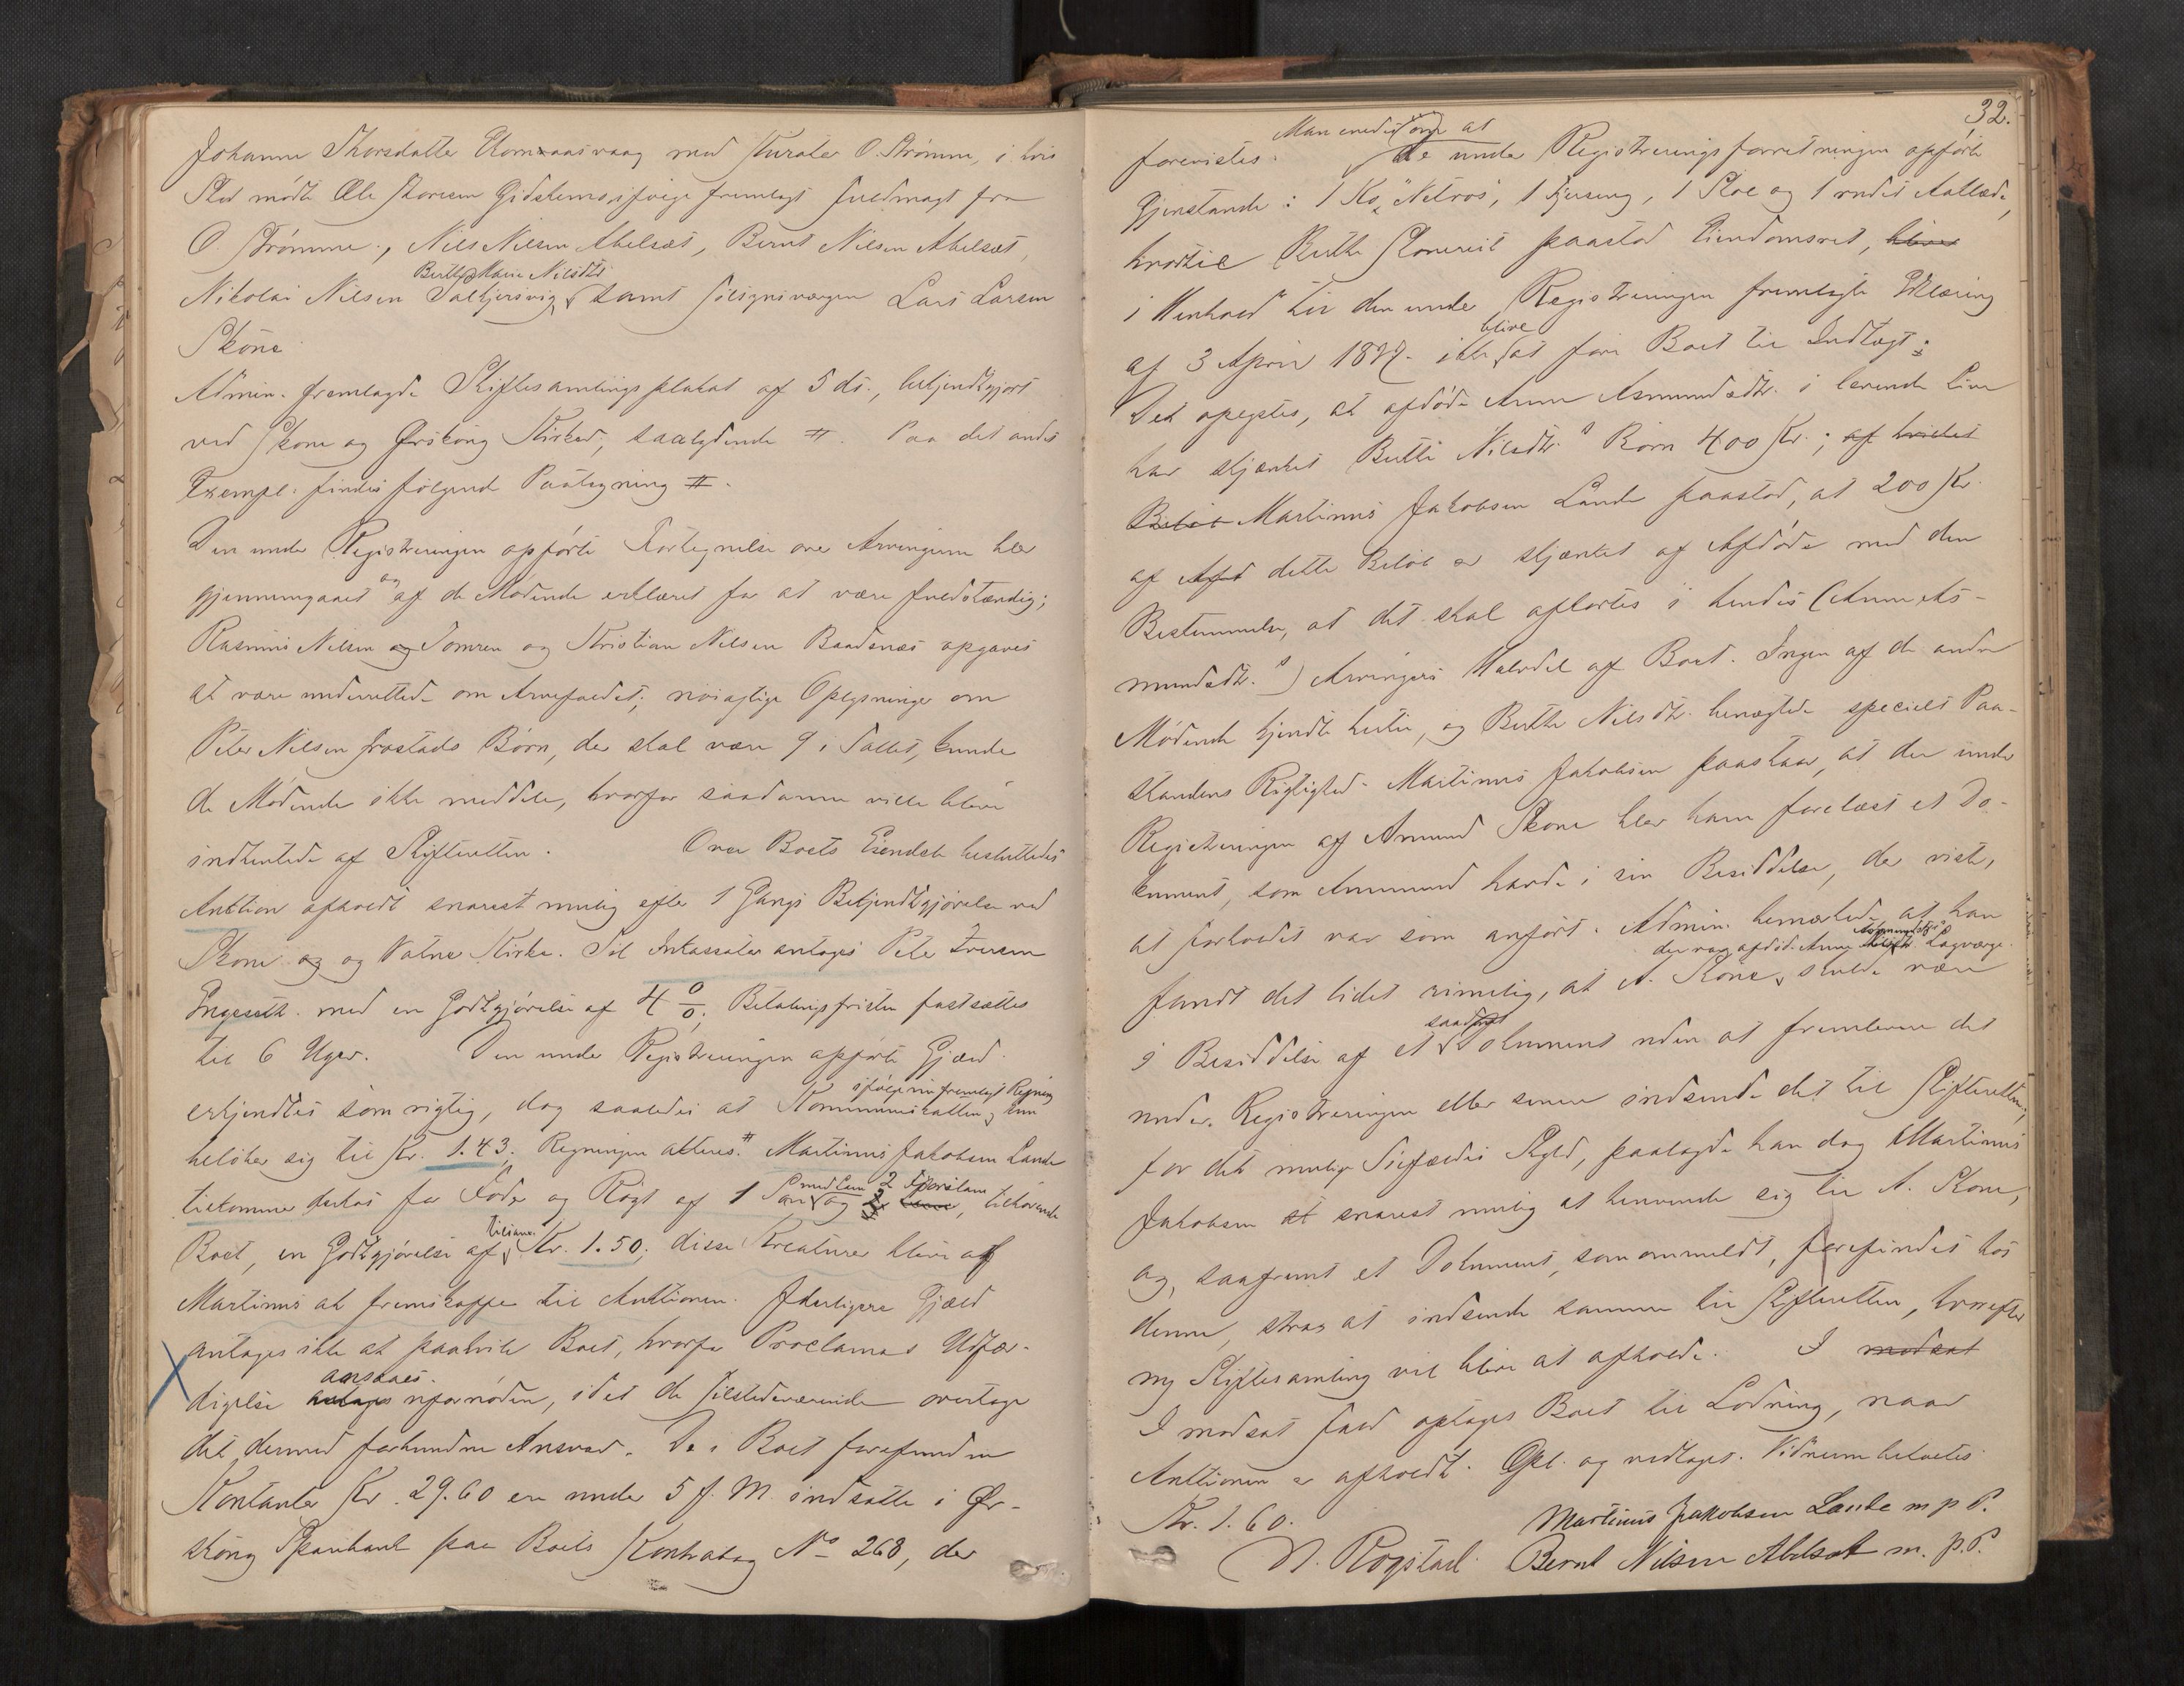 Johanne Thorsdatter Hornaasvaag med Kurator O. Strømme, i hvis
Sted mødte Ole Knutsen Gidskemo ifølge fremlagt Fuldmagt fra
O. Strømme, Nils Nilsen Abelsæt, Bernt Nilsen Abelsæt,
Berthe Marie Nilsdtr.
Nikolai Nilsen Solkjersvig, samt Tilsynsværgen Lars Larsen
Skone.
Admin. fremlagde Skiftesamlingsplakat af 5 ds., bekjendtgjort
ved Skone og Ørskoug Kirker, saalydende #. Paa det andet
Exempl. findes følgende Paategning #.
Den under Registreringen opførte Fortegnelse over Arvingerne blev
gjennemgaaet og af de Mødende erklæret for at være fuldstændig;
Rasmus Nilsen og Tomren og Kristian Nilsen Baadsnæs opgaves
at være underrettede om Arvefaldet; nøiagtige Oplysninger om
Peter Nilsen Frostads Børn, der skal være 9 i Tallet, kunde
de Mødende ikke meddele, hvorfor saadanne ville blive
indhentede af Skifteretten. Over Boets Eiendele besluttedes
Auktion afholdt snarest mulig efter 1 Gangs Bekjendtgjørelse ved
Skone og og Vatne Kirke. Til Inkassator antages Peter Iversen
Engeseth med en Godtgjørelse af 4 %; Betalingsfristen fastsattes
til 6 Uger. Den under Registreringen opførte Gjæld
ifølge nu fremlagt Regning
erkjendtes som rigtig, dog saaledes at Kommuneskatten kun
beløber sig til Kr. 1.43. Regningen akteres. # Martinus Jakobsen Lande
med Lam 2 Fjorslam
tilkommer derhos for Foder og Røgt af 1 Sau og 2, tilhørende
tilsam.
Boet, en Godtgjørelse af Kr. 1.50; disse Kreaturer blive af
Martinus at fremskaffe til Auktionen. Yderligere Gjæld
antages ikke at paahvile Boet, hvorfor Proclamas Udfær-
ansaaes
digelse antages ufornøden, idet de Tilstedeværende overtage
det dermed forbundne Ansvar. De i Boet forefundne
Kontanter Kr. 29.60 ere under 5 f. M. indsatte i Ør-
skoug Sparebank paa Boets Kontrabog No 268, der
32.
Man enedes om at
forevistes. de under Registreringsforretningen opførte
Gjenstande: 1 Ko, "Netros", 1 Kjersing, 1 Stol og 1 rødet Aaklæde,
hvortil Berthe paastod Eiendomsret, blive
i Henhold til den under Registreringen fremlagte Erklæring
blive
af 3 April 1877 ikke at føre Boet til Indtægt.
Det oplystes, at afdøde Anne Asmundsdtr. i levende Live
har skjænket Berthe Nilsdtr.s Børn 400 Kr.; af hvilket
Beløb Martinus Jakobsen Lande paastod, at 200 Kr.
af Afd dette Beløb er skjænket af Afdøde med den
Bestemmelse, at det skal afkortes i hendes (Anne As-
mundsdtr.s) Arvingers Halvdel af Boet. Ingen af de andre
Mødende kjendte hertil, og Berthe Nilsdtr. benægtede specielt Paa-
standens Rigtighed. Martinus Jakobsen paastaar, at der under
Registreringen af Amund Skone blev ham forelæst et Do-
kument, som Ammund havde i sin Besiddelse, der viste,
at Forholdet var som anført. Admin. bemærkede, at han
der var afdøde Anne Asmundsdtrs. Lagværge
fandt det lidet rimelig, at A. Skone, skulde være
saadant
i Besiddelse af et Dokument uden at fremlevere det
under Registreringen eller senere indsende det til Skifteretten;
for det mulige Tilfældes Skyld, paalagde han dog Martinus
Jakobsen at snarest mulig at henvende sig til A. Skone,
og, saafremt et Dokument, som ommeldt, forefindes hos
denne, strax at indsende samme til Skifteretten, hvorefter
ny Skiftesamling vil blive at afholde. I modsat
I modsat Fald optages Boet til Lodning, naar
Auktionen er afholdt. Opl. og vedtaget. Vidnerne betaltes
Kr. 1.60. Martinus Jakobsen Lande m p P.
N. Rogstad. Bernt Nilsen Abelsæt m. p. P.